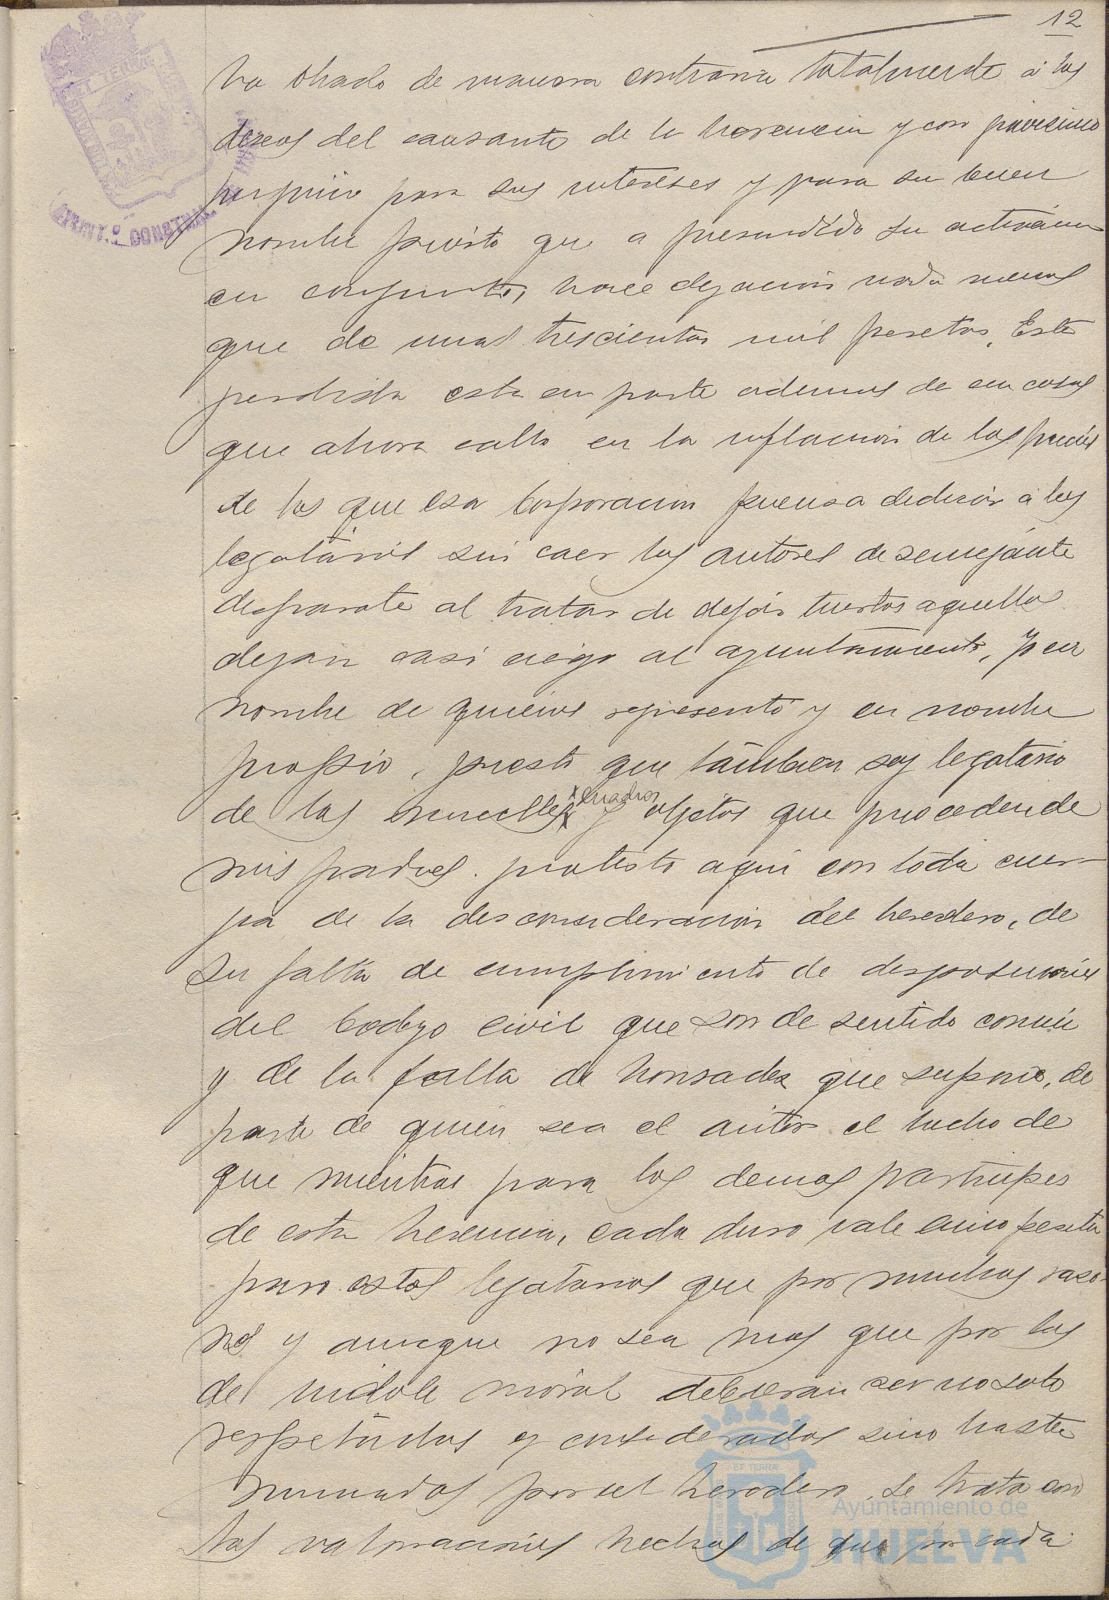 12
ha obrado de manera contraria totalmente á los
deseos del causante de la herencia y con gravisimo
perjuicio para sus intereses y para su buen
nombre puesto que a prescindido su actuacion
en conjunto, hace dejacion nada menos
que de unas trescientas mil pesetas. Esta
perdida esta en parte ademas de en cosas
que ahora callo en la inflacion de los precios
de los que esa Corporacion piensa dedicar á los
legatarios sin caer los autores de semejante
disparate al tratar de dejar tuertos aquellos
dejan casi ciego al ayuntamiento. Yo en
nombre de quienes represento y en nombre
propio, puesto que tambien soy legatario
de los muebles cuadros y objetos que proceden de
mis padres. protesto aqui con toda ener-
gia de la desconsideracion del heredero, de
su falta de cumplimiento de disposiciones
del Codigo civil que son de sentido comun
y de la falta de honradez que supone, de
parte de quien sea el autor el hecho de
que mientras para los demas participes
de esta herencia, cada duro vale cinco pesetas
para estos legatarios que por muchas razo-
nes y aunque no sea mas que por las
de indole moral debieran ser no solo
respetados y considerados sino hasta
mimados por el heredero se trata con
las valoraciones hechas de que por cada
AYUNT.º CONSTNAL
Ayuntamiento de
HUELVA